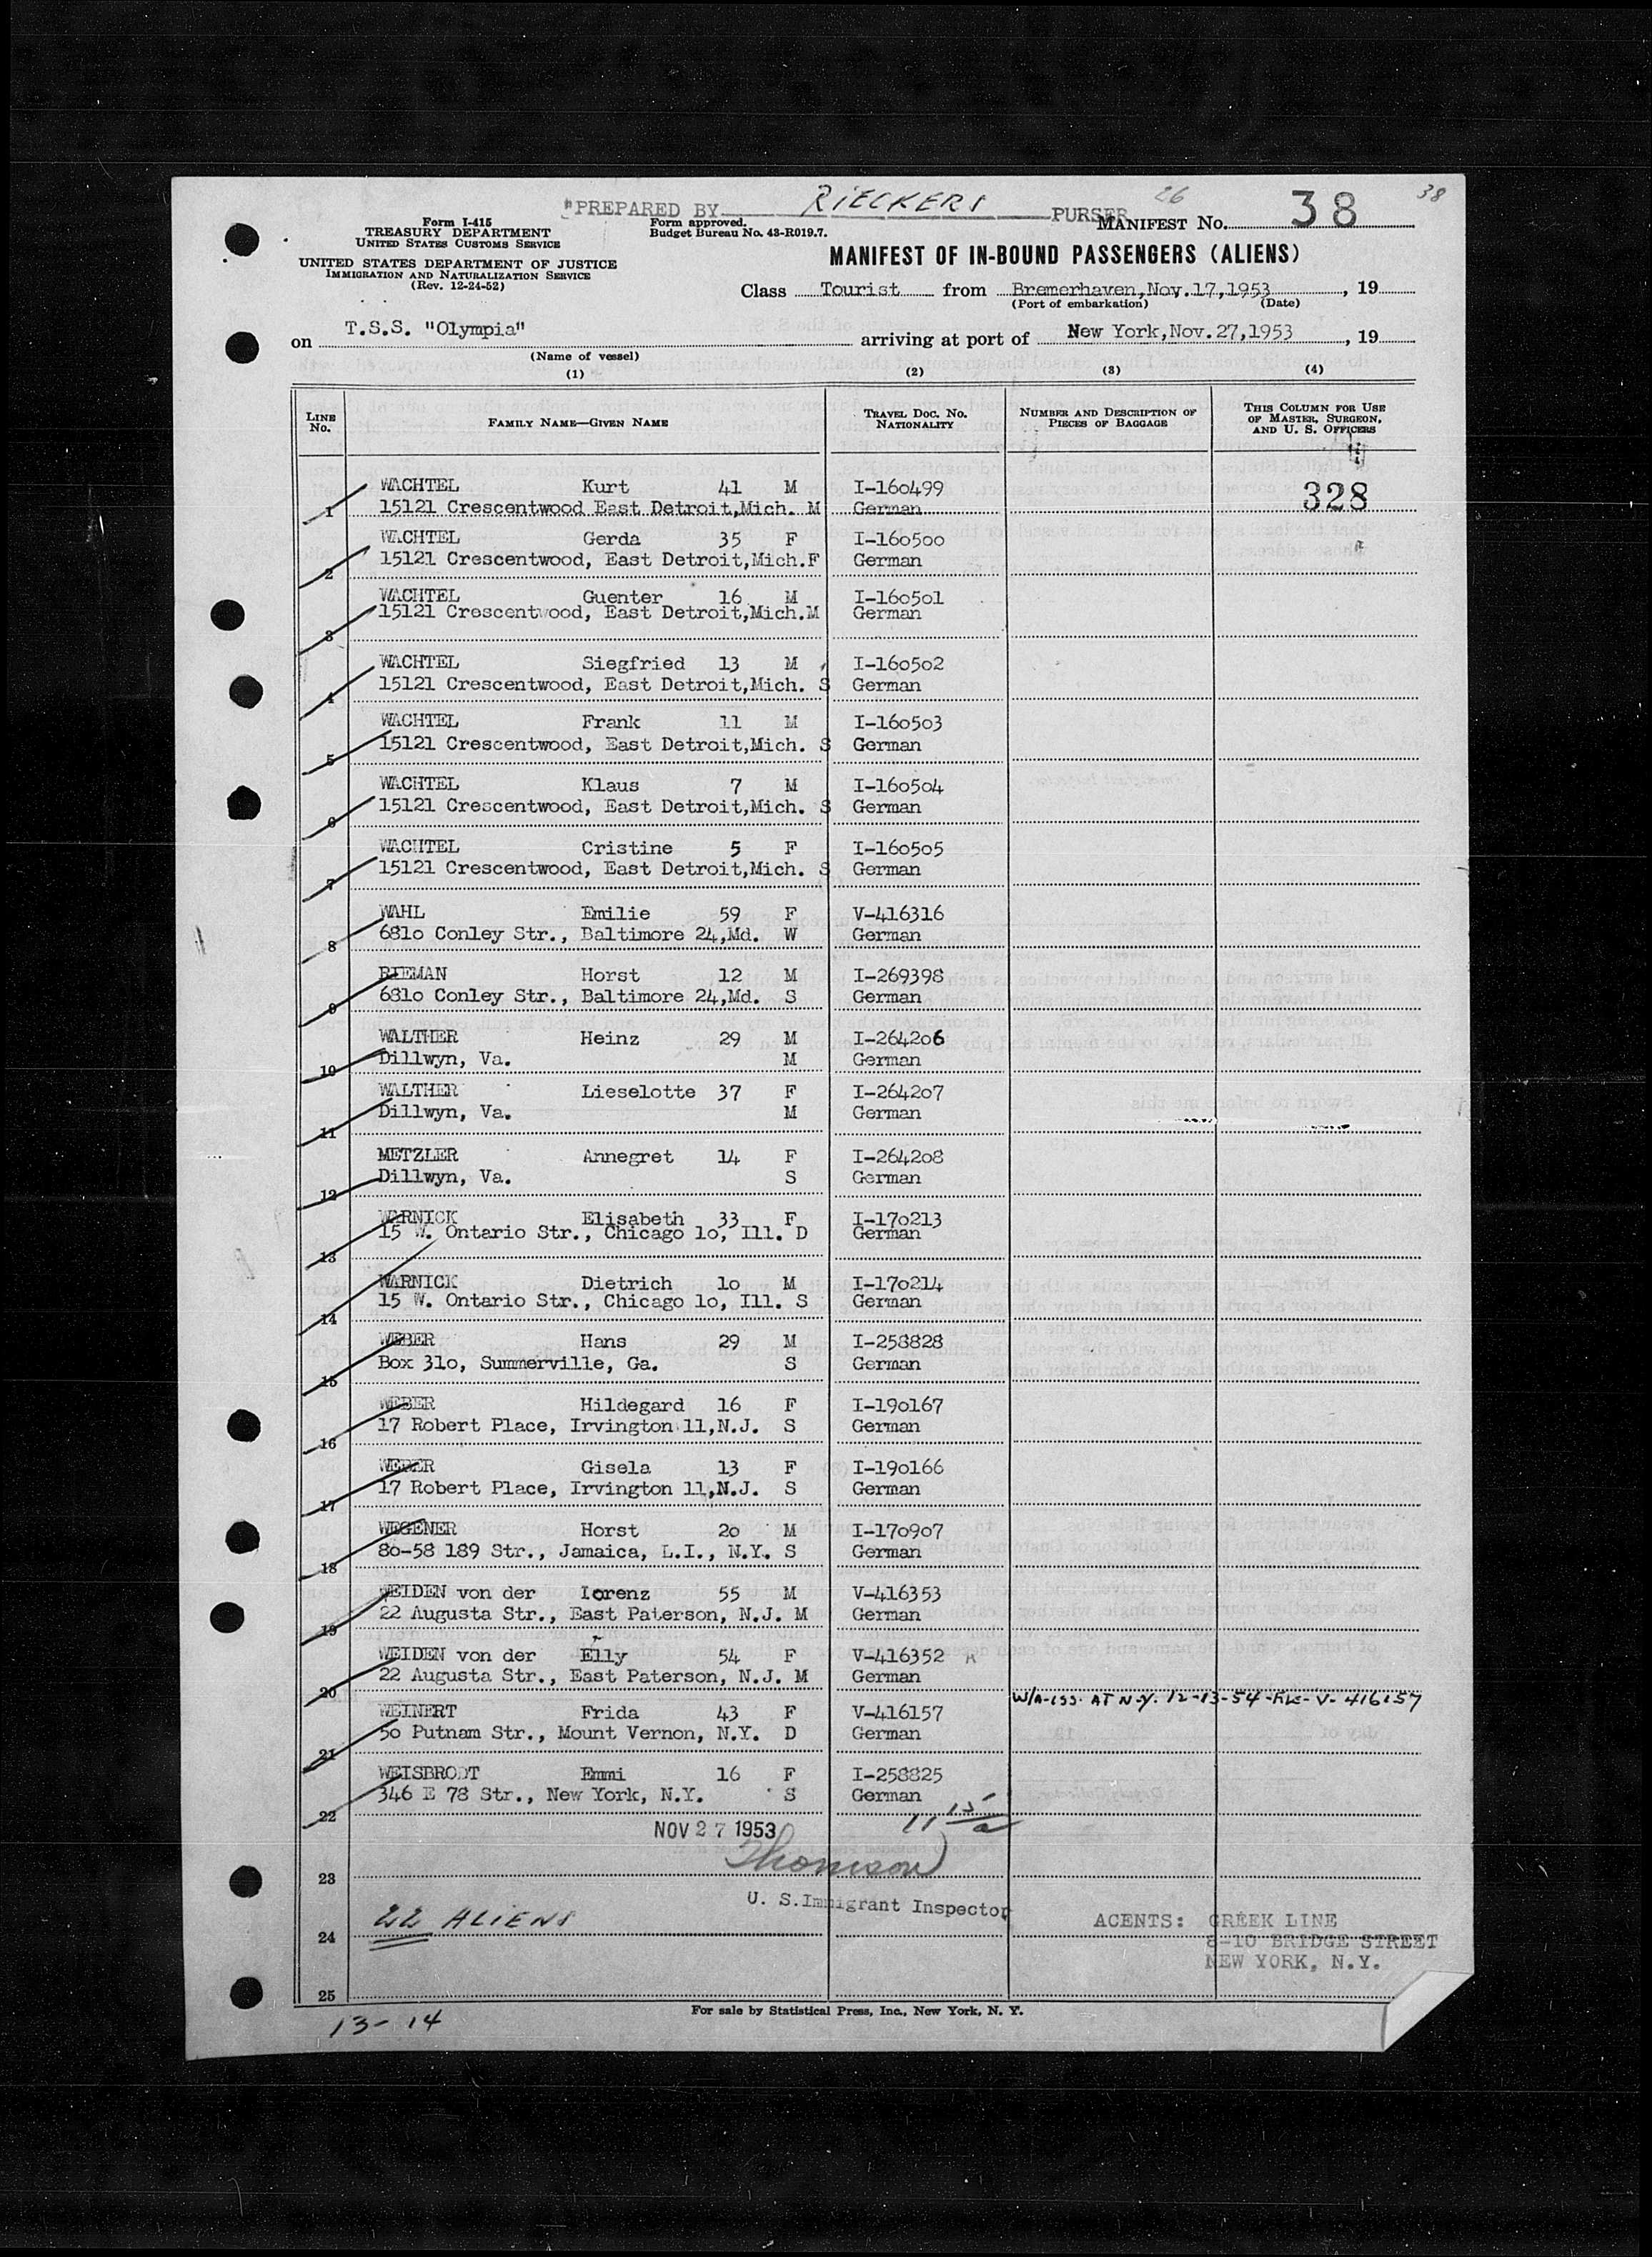 "PREPARED BY RIECKERS PURSER
26
38
Form I-415
TREASURY DEPARTMENT
UNITED STATES CUSTOMS SERVICE
Form approved.
Budget Bureau No. 43-R019.7.
MANIFEST No. 38
UNITED STATES DEPARTMENT OF JUSTICE
IMMIGRATION AND NATURALIZATION SERVICE
(Rev. 12-24-52)
MANIFEST OF IN-BOUND PASSENGERS (ALIENS)
Class Tourist from Bremerhaven, Nov.17,1953, 19
(Port of embarkation) (Date)
on T.S.S. "Olympia" arriving at port of New York,Nov.27,1953, 19
(Name of vessel)
(1) (2) (3) (4)
LINE No. FAMILY NAME—GIVEN NAME TRAVEL DOC. No. NATIONALITY NUMBER AND DESCRIPTION OF PIECES OF BAGGAGE THIS COLUMN FOR USE OF MASTER, SURGEON, AND U. S. OFFICERS
WACHTEL Kurt 41 M I-160499 328
1 15121 Crescentwood East Detroit,Mich. M German
WACHTEL Gerda 35 F I-160500
2 15121 Crescentwood, East Detroit,Mich.F German
WACHTEL Guenter 16 M I-160501
3 15121 Crescentwood, East Detroit,Mich.M German
WACHTEL Siegfried 13 M I-160502
4 15121 Crescentwood, East Detroit,Mich. S German
WACHTEL Frank 11 M I-160503
5 15121 Crescentwood, East Detroit,Mich. S German
WACHTEL Klaus 7 M I-160504
6 15121 Crescentwood, East Detroit,Mich. S German
WACHTEL Cristine 5 F I-160505
7 15121 Crescentwood, East Detroit,Mich. S German
WAHL Emilie 59 F V-416316
8 6810 Conley Str., Baltimore 24,Md. W German
RIEMAN Horst 12 M I-269398
9 6810 Conley Str., Baltimore 24,Md. S German
WALTHER Heinz 29 M I-264206
10 Dillwyn, Va. M German
WALTHER Lieselotte 37 F I-264207
11 Dillwyn, Va. M German
METZLER Annegret 14 F I-264208
12 Dillwyn, Va. S German
WARNICK Elisabeth 33 F I-170213
13 15 W. Ontario Str., Chicago 10, Ill. D German
WARNICK Dietrich 10 M I-170214
14 15 W. Ontario Str., Chicago 10, Ill. S German
WEBER Hans 29 M I-258828
15 Box 310, Summerville, Ga. S German
WEBER Hildegard 16 F I-190167
16 17 Robert Place, Irvington 11,N.J. S German
WEBER Gisela 13 F I-190166
17 17 Robert Place, Irvington 11,N.J. S German
WEGENER Horst 20 M I-170907
18 80-58 189 Str., Jamaica, L.I., N.Y. S German
WEIDEN von der Lorenz 55 M V-416353
19 22 Augusta Str., East Paterson, N.J. M German
WEIDEN von der Elly 54 F V-416352
20 22 Augusta Str., East Paterson, N.J. M German
W/A-ISS. AT N.Y. 12-13-54-FLE-V-416157
WEINERT Frida 43 F V-416157
21 50 Putnam Str., Mount Vernon, N.Y. D German
WEISBRODT Emmi 16 F I-258825
22 346 E 78 Str., New York, N.Y. S German
NOV 27 1953
11 15/a
Thomson
23
U. S. Immigrant Inspector
22 ALIENS
24
AGENTS: GREEK LINE
8-10 BRIDGE STREET
NEW YORK, N.Y.
25
For sale by Statistical Press, Inc., New York, N. Y.
13-14